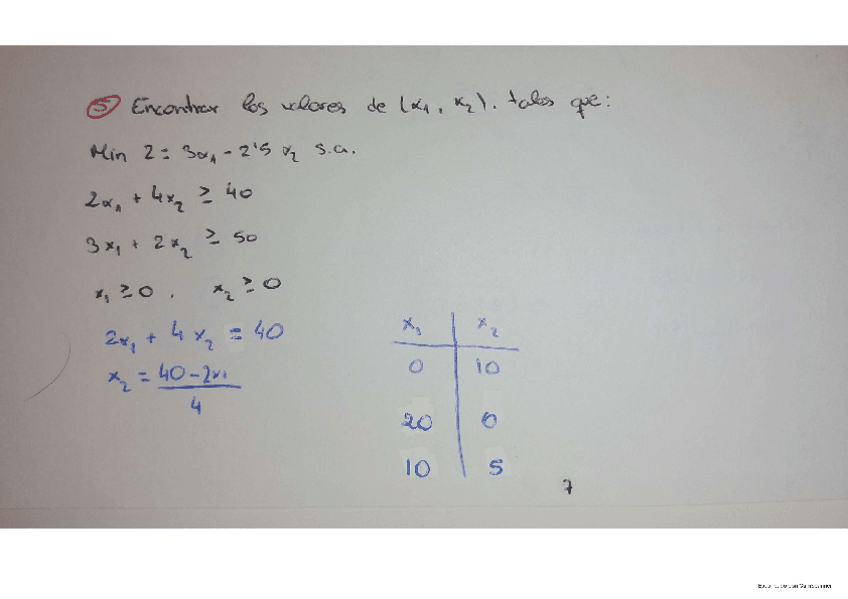 5 Encontrar los valores de (x₁, x₂). tales que:
Min Z = 3x₁ - 2'5 x₂ s.a.
2x₁ + 4x₂ ≥ 40
3x₁ + 2x₂ ≥ 50
x₁ ≥ 0, x₂ ≥ 0
2x₁ + 4x₂ = 40
x₂ = (40 - 2x₁) / 4
x₁ | x₂
0 | 10
20 | 0
10 | 5
7